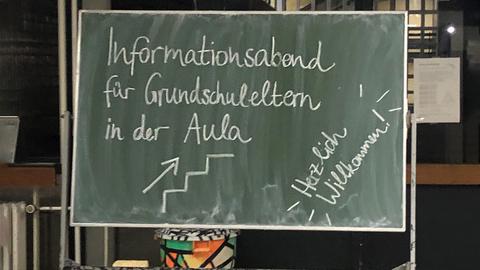 Informationsabend
für Grundschuleltern
in der Aula
Herzlich
Willkommen!